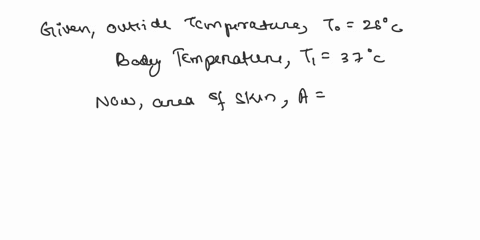 Given, outside Temperature, T₀ = 28°c
Body Temperature, T₁ = 37°c
Now, area of skin, A =